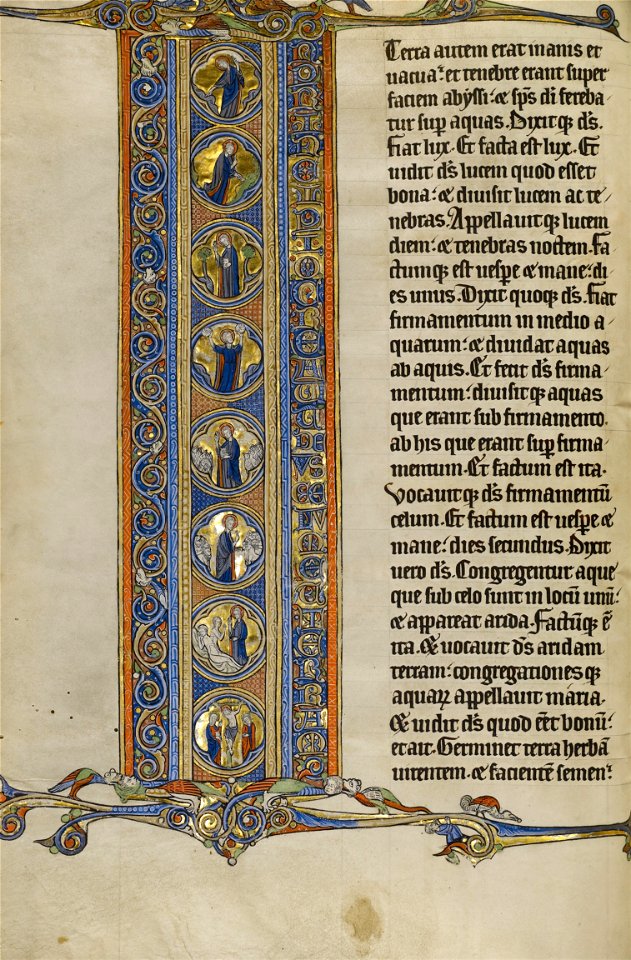 IN PRINCIPIO CREAUIT DEUS CELUM ET TERRAM
Terra autem erat inanis et
uacua: et tenebre erant super
faciem abyssi: & sp̄s dī fereba
tur suꝑ aquas. Dixitqꝫ dš.
Fiat lux. Et facta est lux. Et
uidit dš lucem quod esset
bona: & diuisit lucem ac te
nebras. Appellauitqꝫ lucem
diem: & tenebras noctem. Fa
ctumqꝫ est uespe & mane: di
es unus. Dixit quoqꝫ dš. Fiat
firmamentum in medio a
quatum: & diuidat aquas
ab aquis. Et fecit dš firma
mentum: diuisitqꝫ aquas
que erant sub firmamento.
ab his que erant suꝑ firma
mentum. Et factum est ita.
Vocauitqꝫ dš firmamentū
celum. Et factum est uespe &
mane: dies secundus. Dixit
uero dš. Congregentur aque
que sub celo sunt in locū unū:
& appareat arida. Factūqꝫ ē
ita. & uocauit dš aridam
terram: congregationes qꝫ
aquaꝝ appellauit maria.
& uidit dš quod eēt bonū:
et ait. Germinet terra herbā
uirentem. & facientē semen: